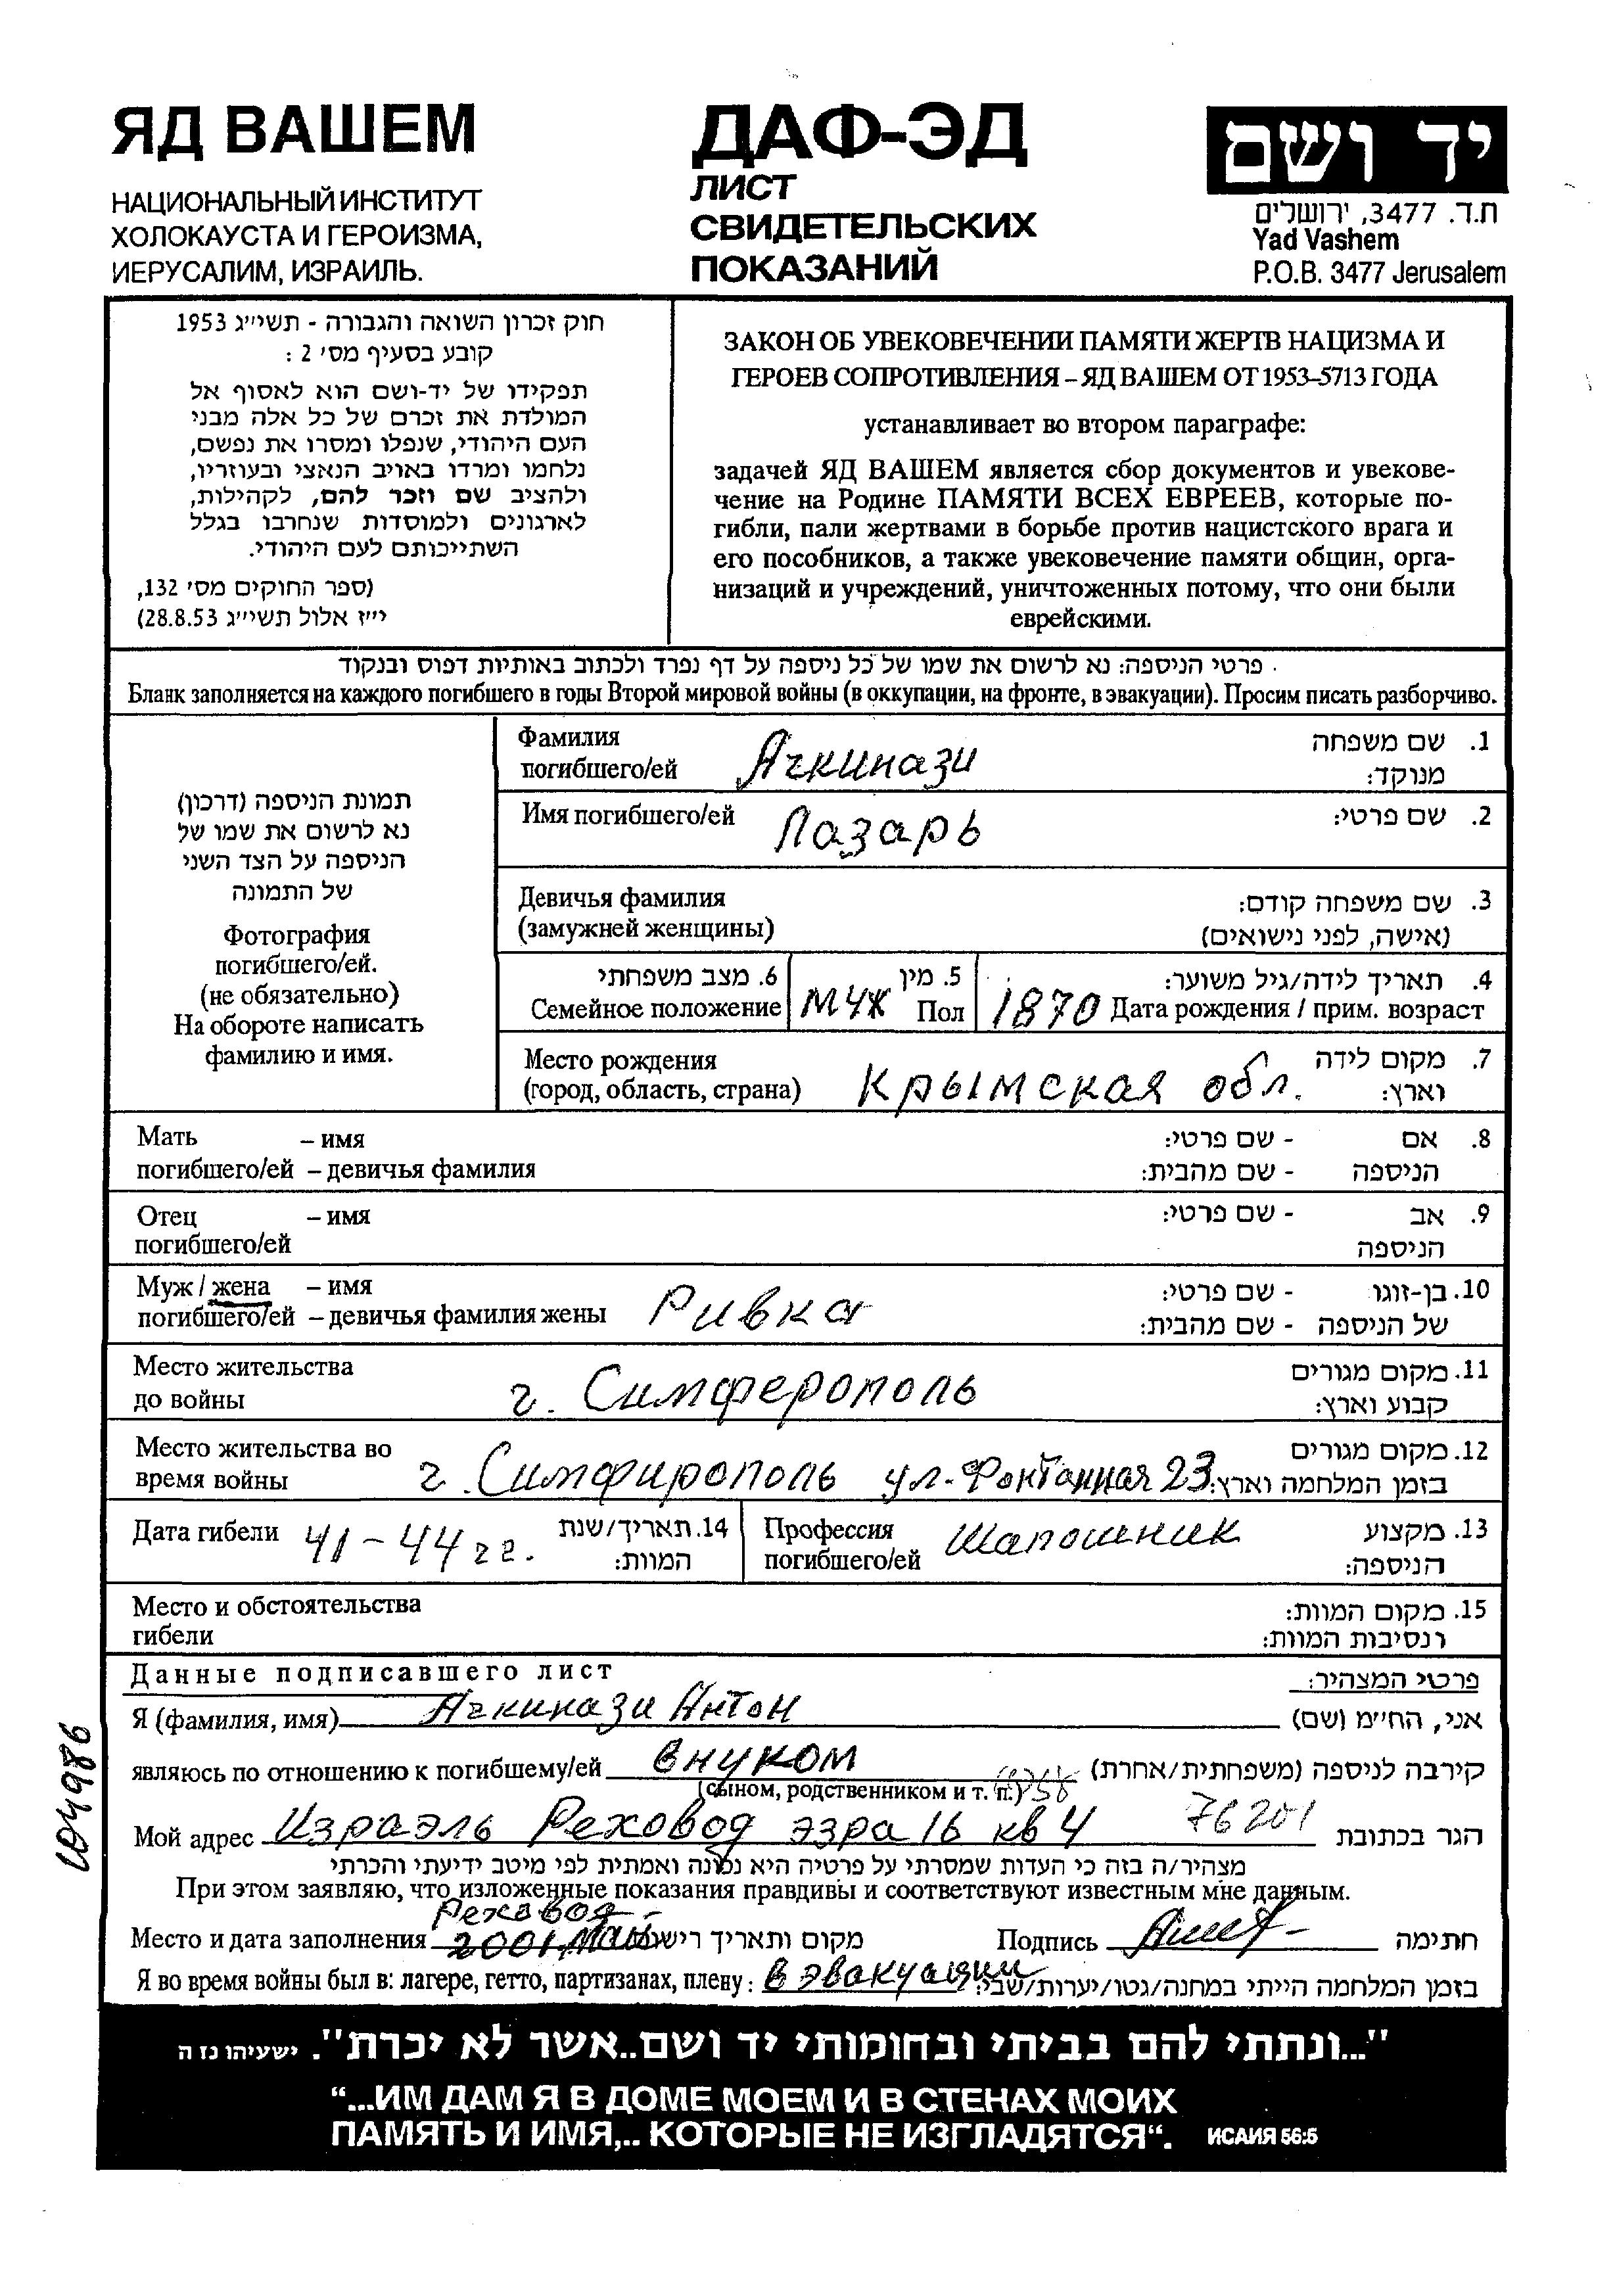 ЯД ВАШЕМ
НАЦИОНАЛЬНЫЙ ИНСТИТУТ
ХОЛОКАУСТА И ГЕРОИЗМА,
ИЕРУСАЛИМ, ИЗРАИЛЬ.
ДАФ-ЭД
ЛИСТ
СВИДЕТЕЛЬСКИХ
ПОКАЗАНИЙ
יד ושם
ת.ד. 3477, ירושלים
Yad Vashem
P.O.B. 3477 Jerusalem
חוק זכרון השואה והגבורה - תשי״ג 1953
קובע בסעיף מס׳ 2 :
תפקידו של יד-ושם הוא לאסוף אל
המולדת את זכרם של כל אלה מבני
העם היהודי, שנפלו ומסרו את נפשם,
נלחמו ומרדו באויב הנאצי ובעוזריו,
ולהציב שם וזכר להם, לקהילות,
לארגונים ולמוסדות שנחרבו בגלל
השתייכותם לעם היהודי.
(ספר החוקים מס׳ 132,
י״ז אלול תשי״ג 28.8.53)
ЗАКОН ОБ УВЕКОВЕЧЕНИИ ПАМЯТИ ЖЕРТВ НАЦИЗМА И
ГЕРОЕВ СОПРОТИВЛЕНИЯ – ЯД ВАШЕМ ОТ 1953–5713 ГОДА
устанавливает во втором параграфе:
задачей ЯД ВАШЕМ является сбор документов и увекове-
чение на Родине ПАМЯТИ ВСЕХ ЕВРЕЕВ, которые по-
гибли, пали жертвами в борьбе против нацистского врага и
его пособников, а также увековечение памяти общин, орга-
низаций и учреждений, уничтоженных потому, что они были
еврейскими.
פרטי הניספה: נא לרשום את שמו של כל ניספה על דף נפרד ולכתוב באותיות דפוס ובנקוד
Бланк заполняется на каждого погибшего в годы Второй мировой войны (в оккупации, на фронте, в эвакуации). Просим писать разборчиво.
תמונת הניספה (דרכון)
נא לרשום את שמו של
הניספה על הצד השני
של התמונה
Фотография
погибшего/ей.
(не обязательно)
На обороте написать
фамилию и имя.
Фамилия
погибшего/ей Ачкинази
1. שם משפחה
מנוקד:
Имя погибшего/ей Лазарь 2. שם פרטי:
Девичья фамилия
(замужней женщины)
3. שם משפחה קודם:
(אישה, לפני נישואים)
6. מצב משפחתי
Семейное положение
5. מין
муж Пол
4. תאריך לידה/גיל משוער:
1870 Дата рождения / прим. возраст
Место рождения
(город, область, страна) Крымская обл.
7. מקום לידה
וארץ:
Мать – имя
погибшего/ей – девичья фамилия
8. אם - שם פרטי:
הניספה - שם מהבית:
Отец – имя
погибшего/ей
9. אב - שם פרטי:
הניספה
Муж / жена – имя
погибшего/ей – девичья фамилия жены Ривка
10. בן-זוגו - שם פרטי:
של הניספה - שם מהבית:
Место жительства
до войны г. Симферополь
11. מקום מגורים
קבוע וארץ:
Место жительства во
время войны г. Симфирополь ул. Фонтанная 23
12. מקום מגורים
בזמן המלחמה וארץ:
Дата гибели 41-44 гг.
14. תאריך/שנת
המוות:
Профессия
погибшего/ей Шапошник
13. מקצוע
הניספה:
Место и обстоятельства
гибели
15. מקום המוות:
ונסיבות המוות:
Данные подписавшего лист פרטי המצהיר:
Я (фамилия, имя) Ачкинази Антон אני, הח״מ (שם)
являюсь по отношению к погибшему/ей внуком קירבה לניספה (משפחתית/אחרת)
(сыном, родственником и т. п.)
Мой адрес Израэль Реховод эзра 16 кв 4 76201 הגר בכתובת
מצהיר/ה בזה כי העדות שמסרתי על פרטיה היא נכונה ואמתית לפי מיטב ידיעתי והכרתי
При этом заявляю, что изложенные показания правдивы и соответствуют известным мне данным.
Реховод
Место и дата заполнения 2001, май מקום ותאריך רישום Подпись חתימה
Я во время войны был в: лагере, гетто, партизанах, плену: в эвакуации בזמן המלחמה הייתי במחנה/גטו/יערות/שבי:
104986
"...ונתתי להם בביתי ובחומותי יד ושם..אשר לא יכרת". ישעיהו נז ה
“...ИМ ДАМ Я В ДОМЕ МОЕМ И В СТЕНАХ МОИХ
ПАМЯТЬ И ИМЯ,.. КОТОРЫЕ НЕ ИЗГЛАДЯТСЯ“. ИСАИЯ 56:5